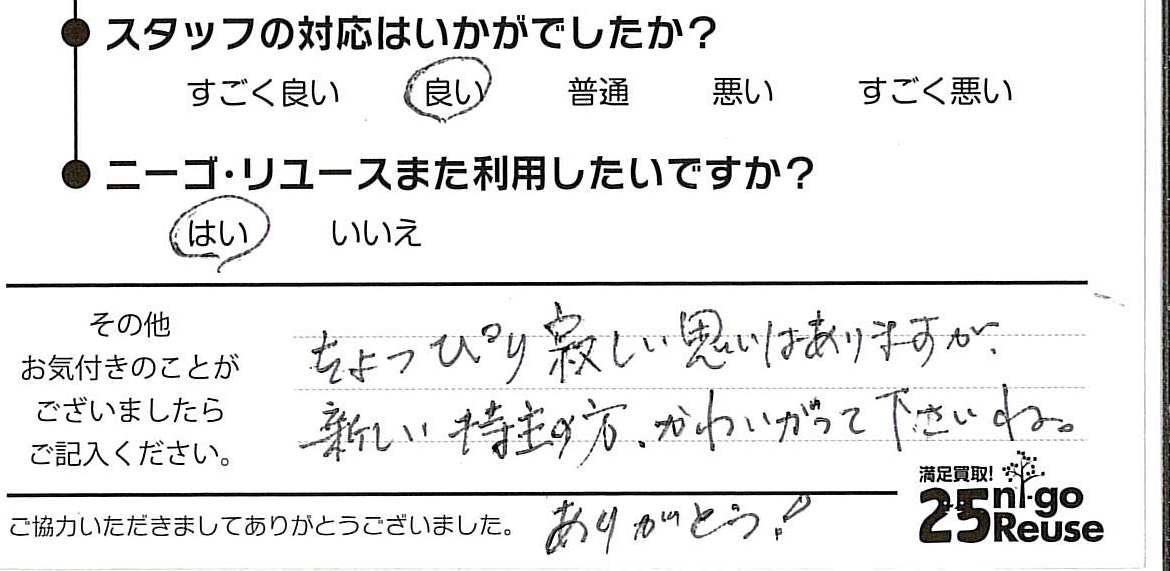 スタッフの対応はいかがでしたか?
すごく良い 良い 普通 悪い すごく悪い
ニーゴ・リユースまた利用したいですか?
はい いいえ
その他
お気付きのことが
ございましたら
ご記入ください。
ちょっぴり寂しい思いはありますが、
新しい持主の方、かわいがって下さいね。
満足買取!
25 ni-go
Reuse
ご協力いただきましてありがとうございました。
ありがとう!